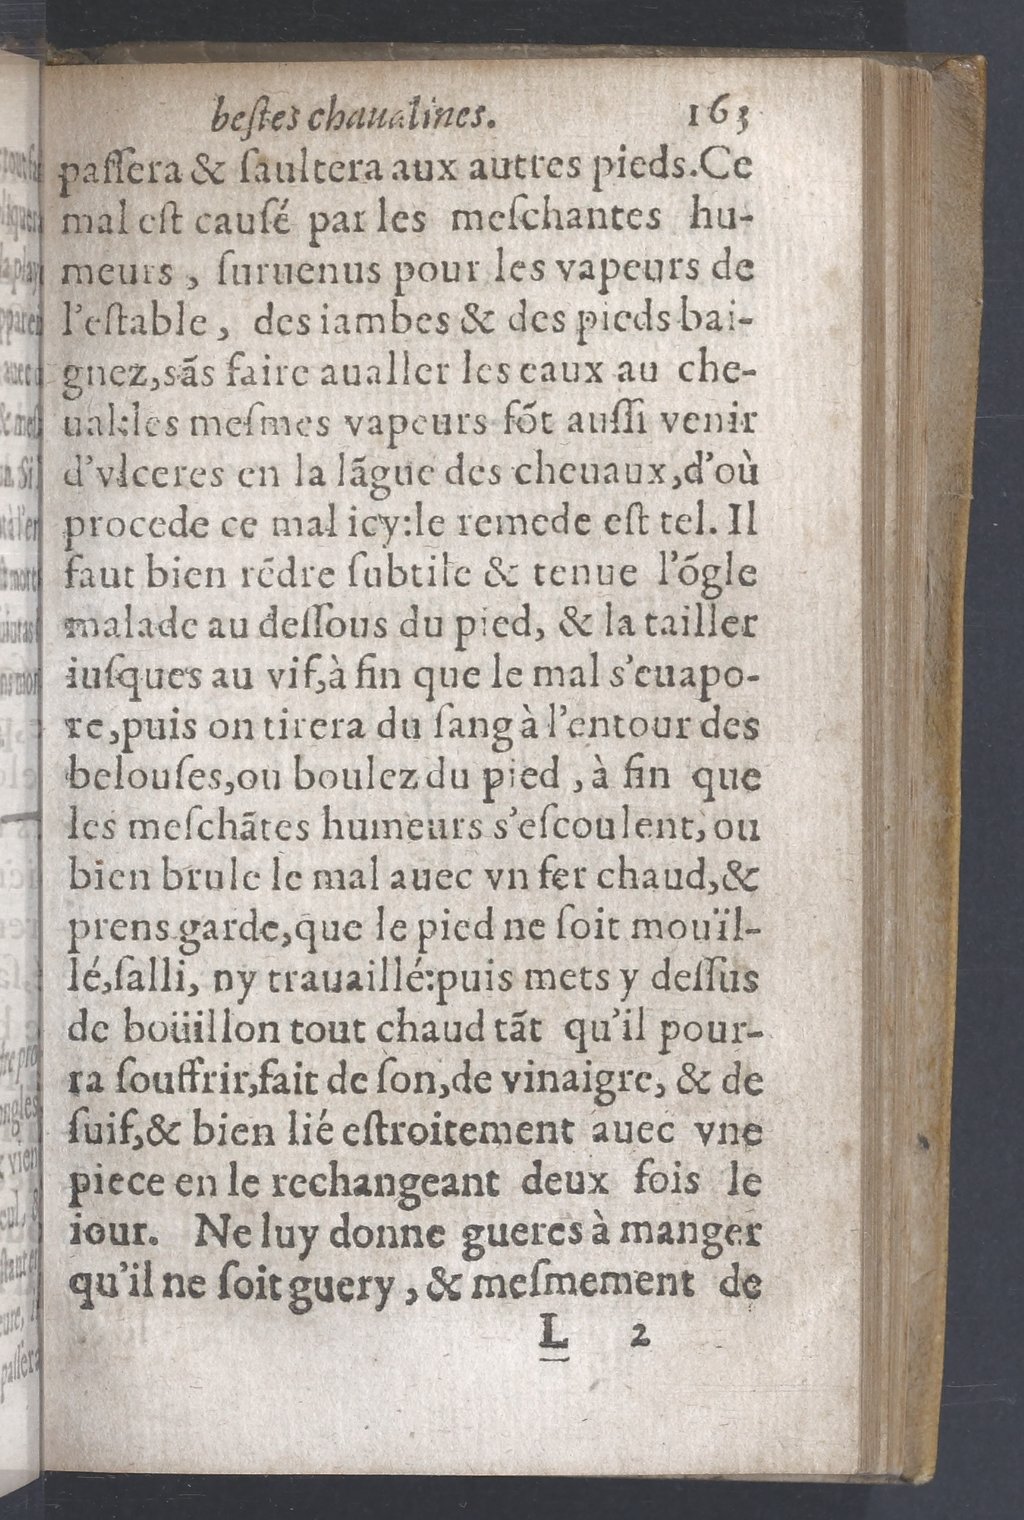 beſtes chaualines. 163
paſſera & ſaultera aux autres pieds.Ce
mal eſt cauſé par les meſchantes hu-
meurs, ſuruenus pour les vapeurs de
l'eſtable, des iambes & des pieds bai-
gnez,sãs faire aualler les eaux au che-
ual:les meſmes vapeurs fõt auſſi venir
d'vlceres en la lãgue des cheuaux,d'où
procede ce mal icy:le remede eſt tel. Il
faut bien rẽdre ſubtile & tenue l'õgle
malade au deſſous du pied, & la tailler
iuſques au vif,à fin que le mal s'euapo-
re,puis on tirera du ſang à l'entour des
belouſes,ou boulez du pied, à fin que
les meſchãtes humeurs s'eſcoulent, ou
bien brule le mal auec vn fer chaud,&
prens garde,que le pied ne ſoit mouïl-
lé,ſalli, ny trauaillé:puis mets y deſſus
de boüillon tout chaud tãt qu'il pour-
ra ſouffrir,fait de ſon,de vinaigre, & de
ſuif,& bien lié eſtroitement auec vne
piece en le rechangeant deux fois le
iour. Ne luy donne gueres à manger
qu'il ne ſoit guery, & meſmement de
L 2